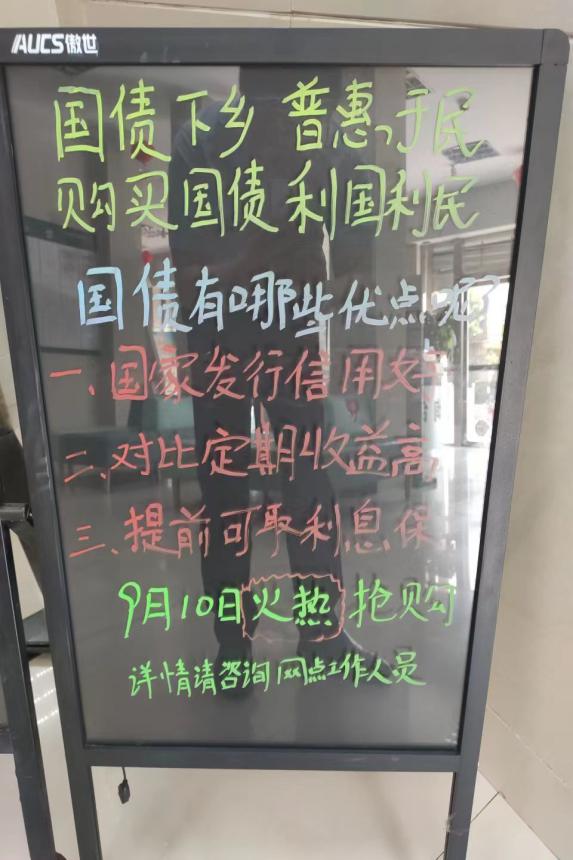 AUCS傲世
国债下乡 普惠于民
购买国债利国利民
国债有哪些优点呢?
一、国家发行信用好
二、对比定期收益高
三、提前可取利息保
9月10日火热抢购
详情请咨询网点工作人员